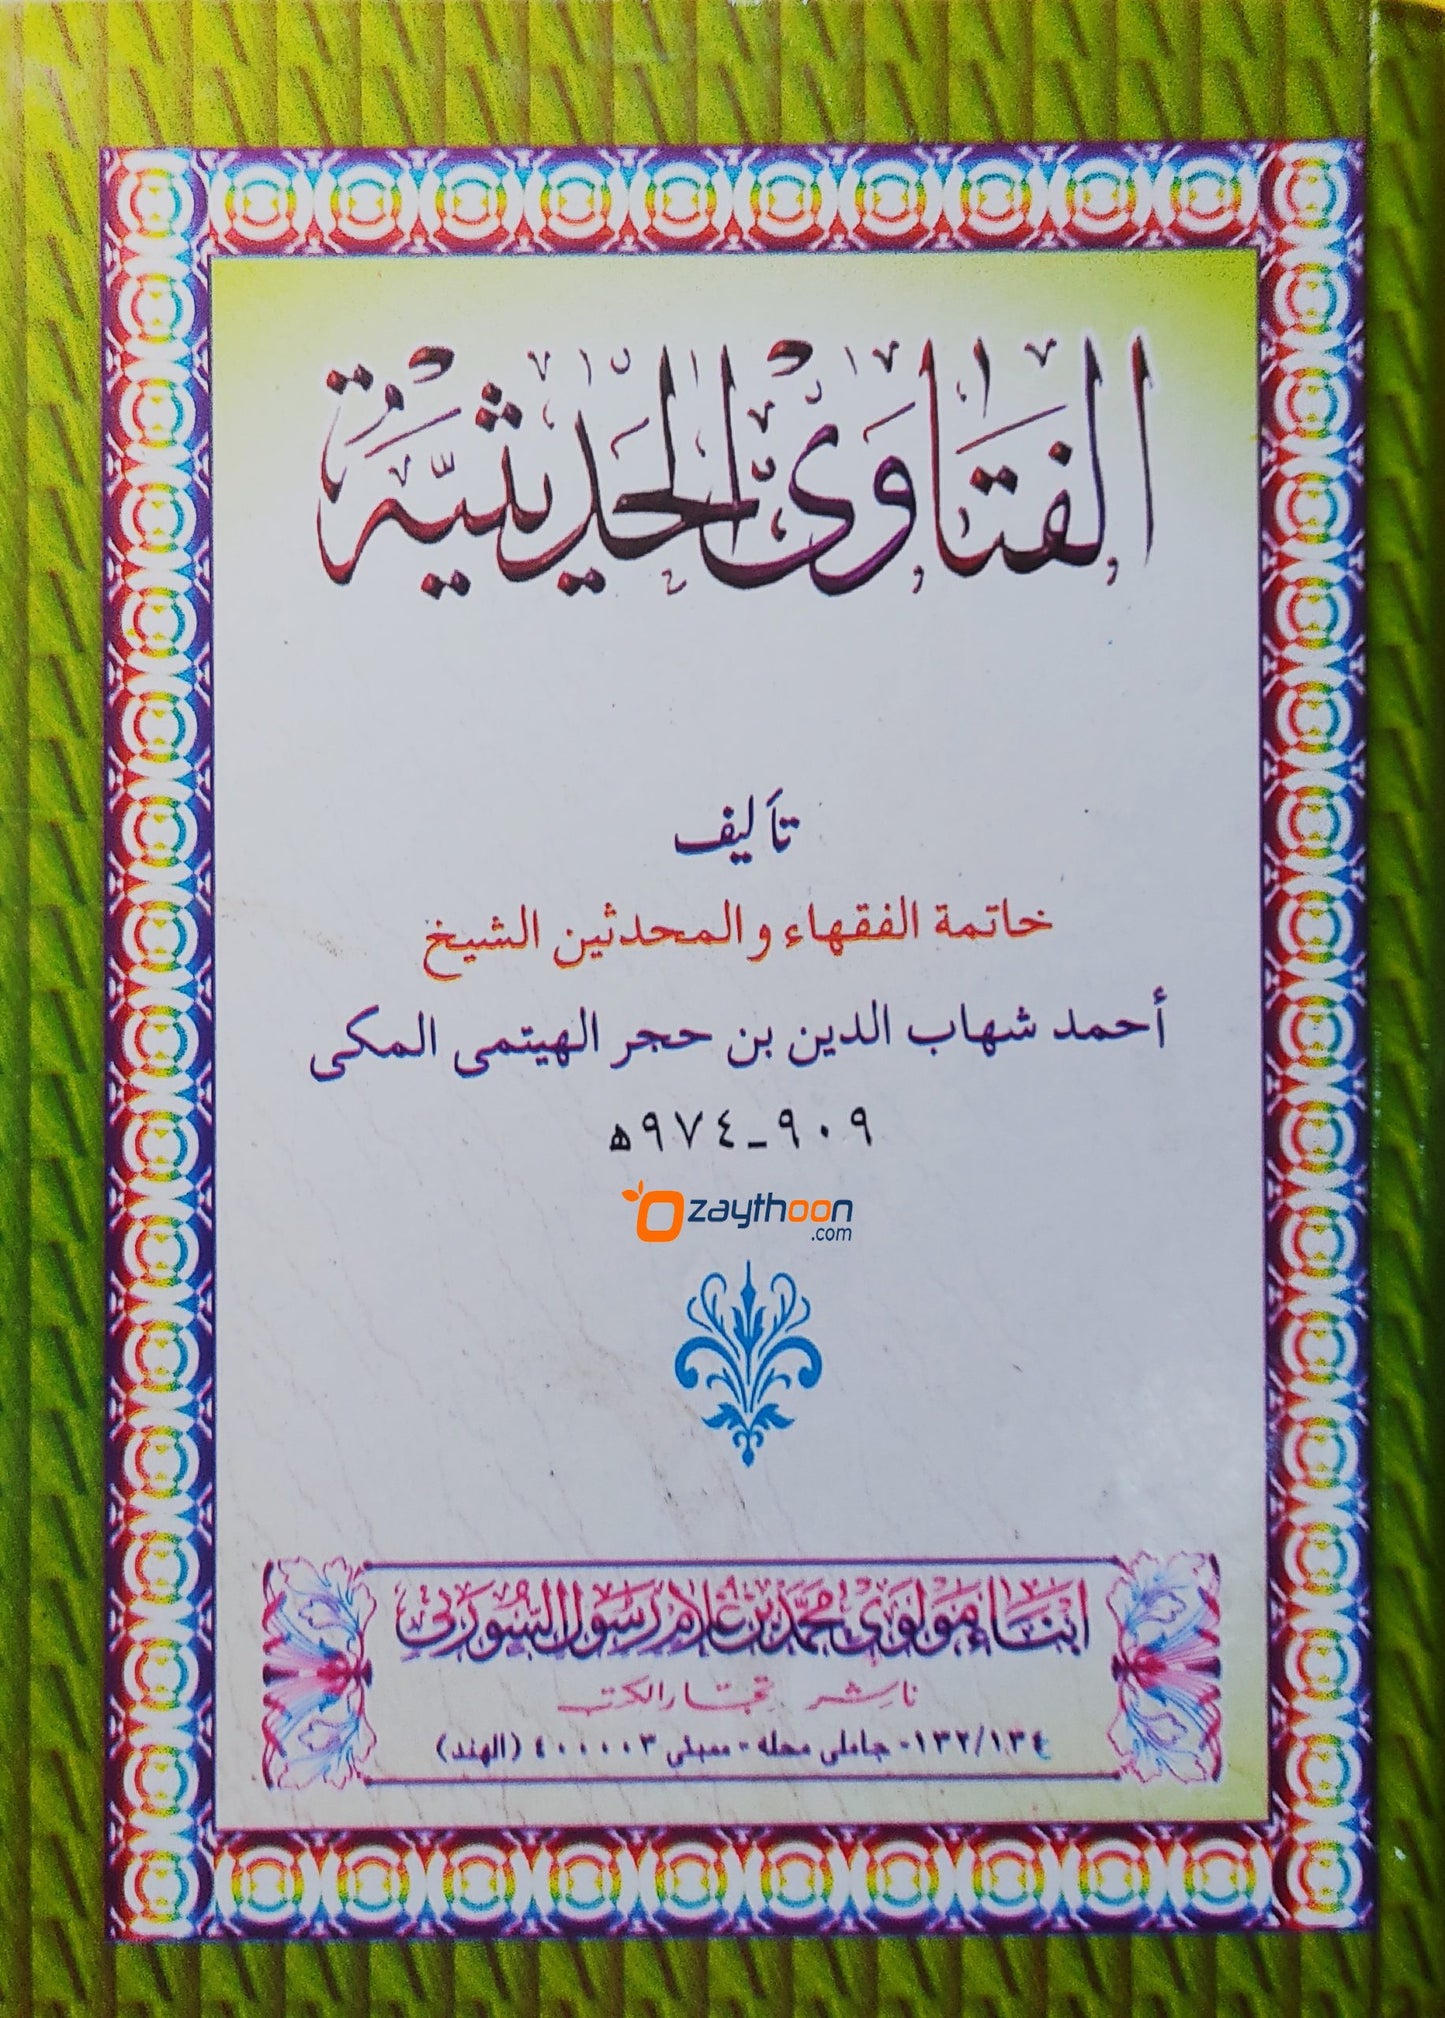 الفتاوى الحديثية
تأليف
خاتمة الفقهاء والمحدثين الشيخ
أحمد شهاب الدين بن حجر الهيتمى المكى
٩٠٩-٩٧٤ه
zaythoon
.com
ابناء مولوى محمد بن غلام رسول السورتى
ناشر تجار الكتب
١٣٢/١٣٤- جاملى محله - ممبئى ٤٠٠٠٠٣ (الهند)